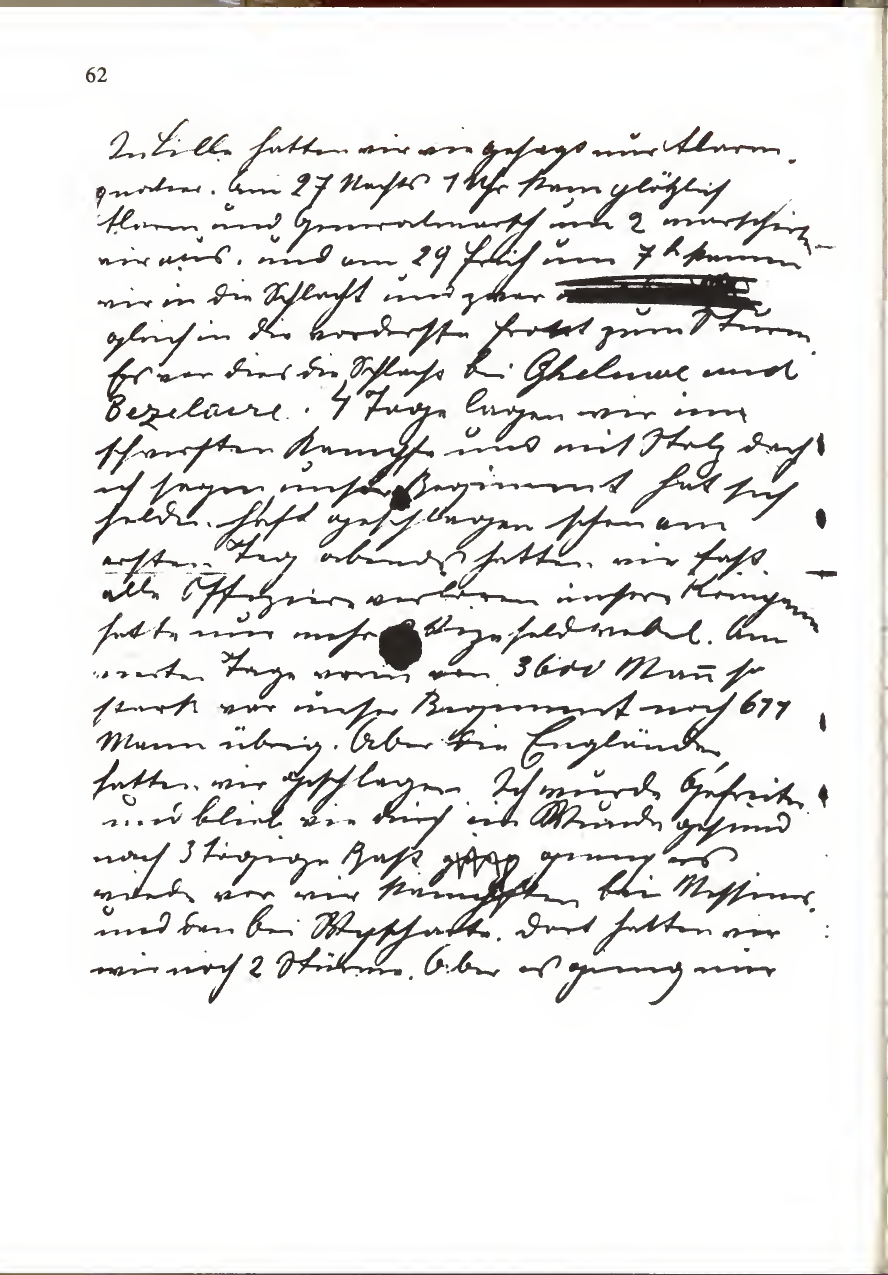 62
In Lille hatten wir wie gesagt nur Alarm-
quatier. Am 27 Nachts 1 Uhr kam plötzlich
Alarm und Generalmarsch um 2 marschirten
wir aus. und am 29 früh um 7h kamen
wir in die Schlacht und zwar
gleich in die vorderste Front zum Sturm.
Es war dies die Schlacht bei Gheluwe und
Bezelaere. 4 Tage lagen wir im
schwersten Kampfe und mit Stolz darf
ich sagen unser Regiment hat sich
heldenhaft geschlagen schon am
ersten Tag abends hatten wir fast
alle Offeziere verloren unsere Kompanie
hatte nur mehr Vizefeldwebel. Am
vierten Tage waren von 3600 Mann so
stark war unser Regiment noch 611
Mann übrig. Aber die Engländer
hatten wir geschlagen. Ich wurde Gefreiter
und blieb wie durch ein Wunder gesund
nach 3 tägige Rast ging es
wieder vor wir kämpften bei Messines
und dan bei Wyschaete. Dort hatten wir
wir noch 2 Stürme. Aber es ging mir